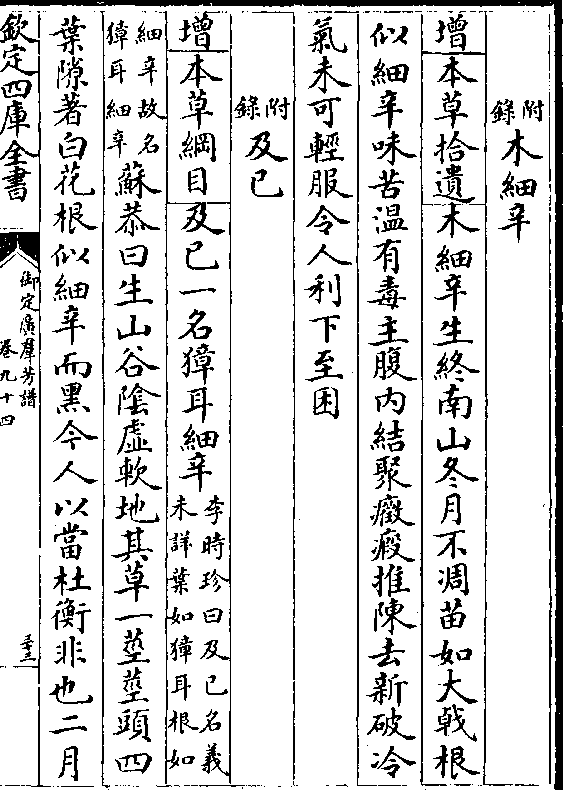 附錄木細辛
增本草拾遺木細辛生終南山冬月不凋苗如大戟根
似細辛味苦温有毒主腹内結聚癥瘕推陳去新破冷
氣未可輕服令人利下至困
附錄及已
增本草綱目及已一名獐耳細辛李時珍曰及已名義未詳葉如獐耳根如
細辛故名獐耳細辛蘇恭曰生山谷陰虛軟地其草一莖莖頭四
葉隙著白花根似細辛而黑今人以當杜衡非也二月
欽定四庫全書
御定廣羣芳譜
卷九十四
三十三